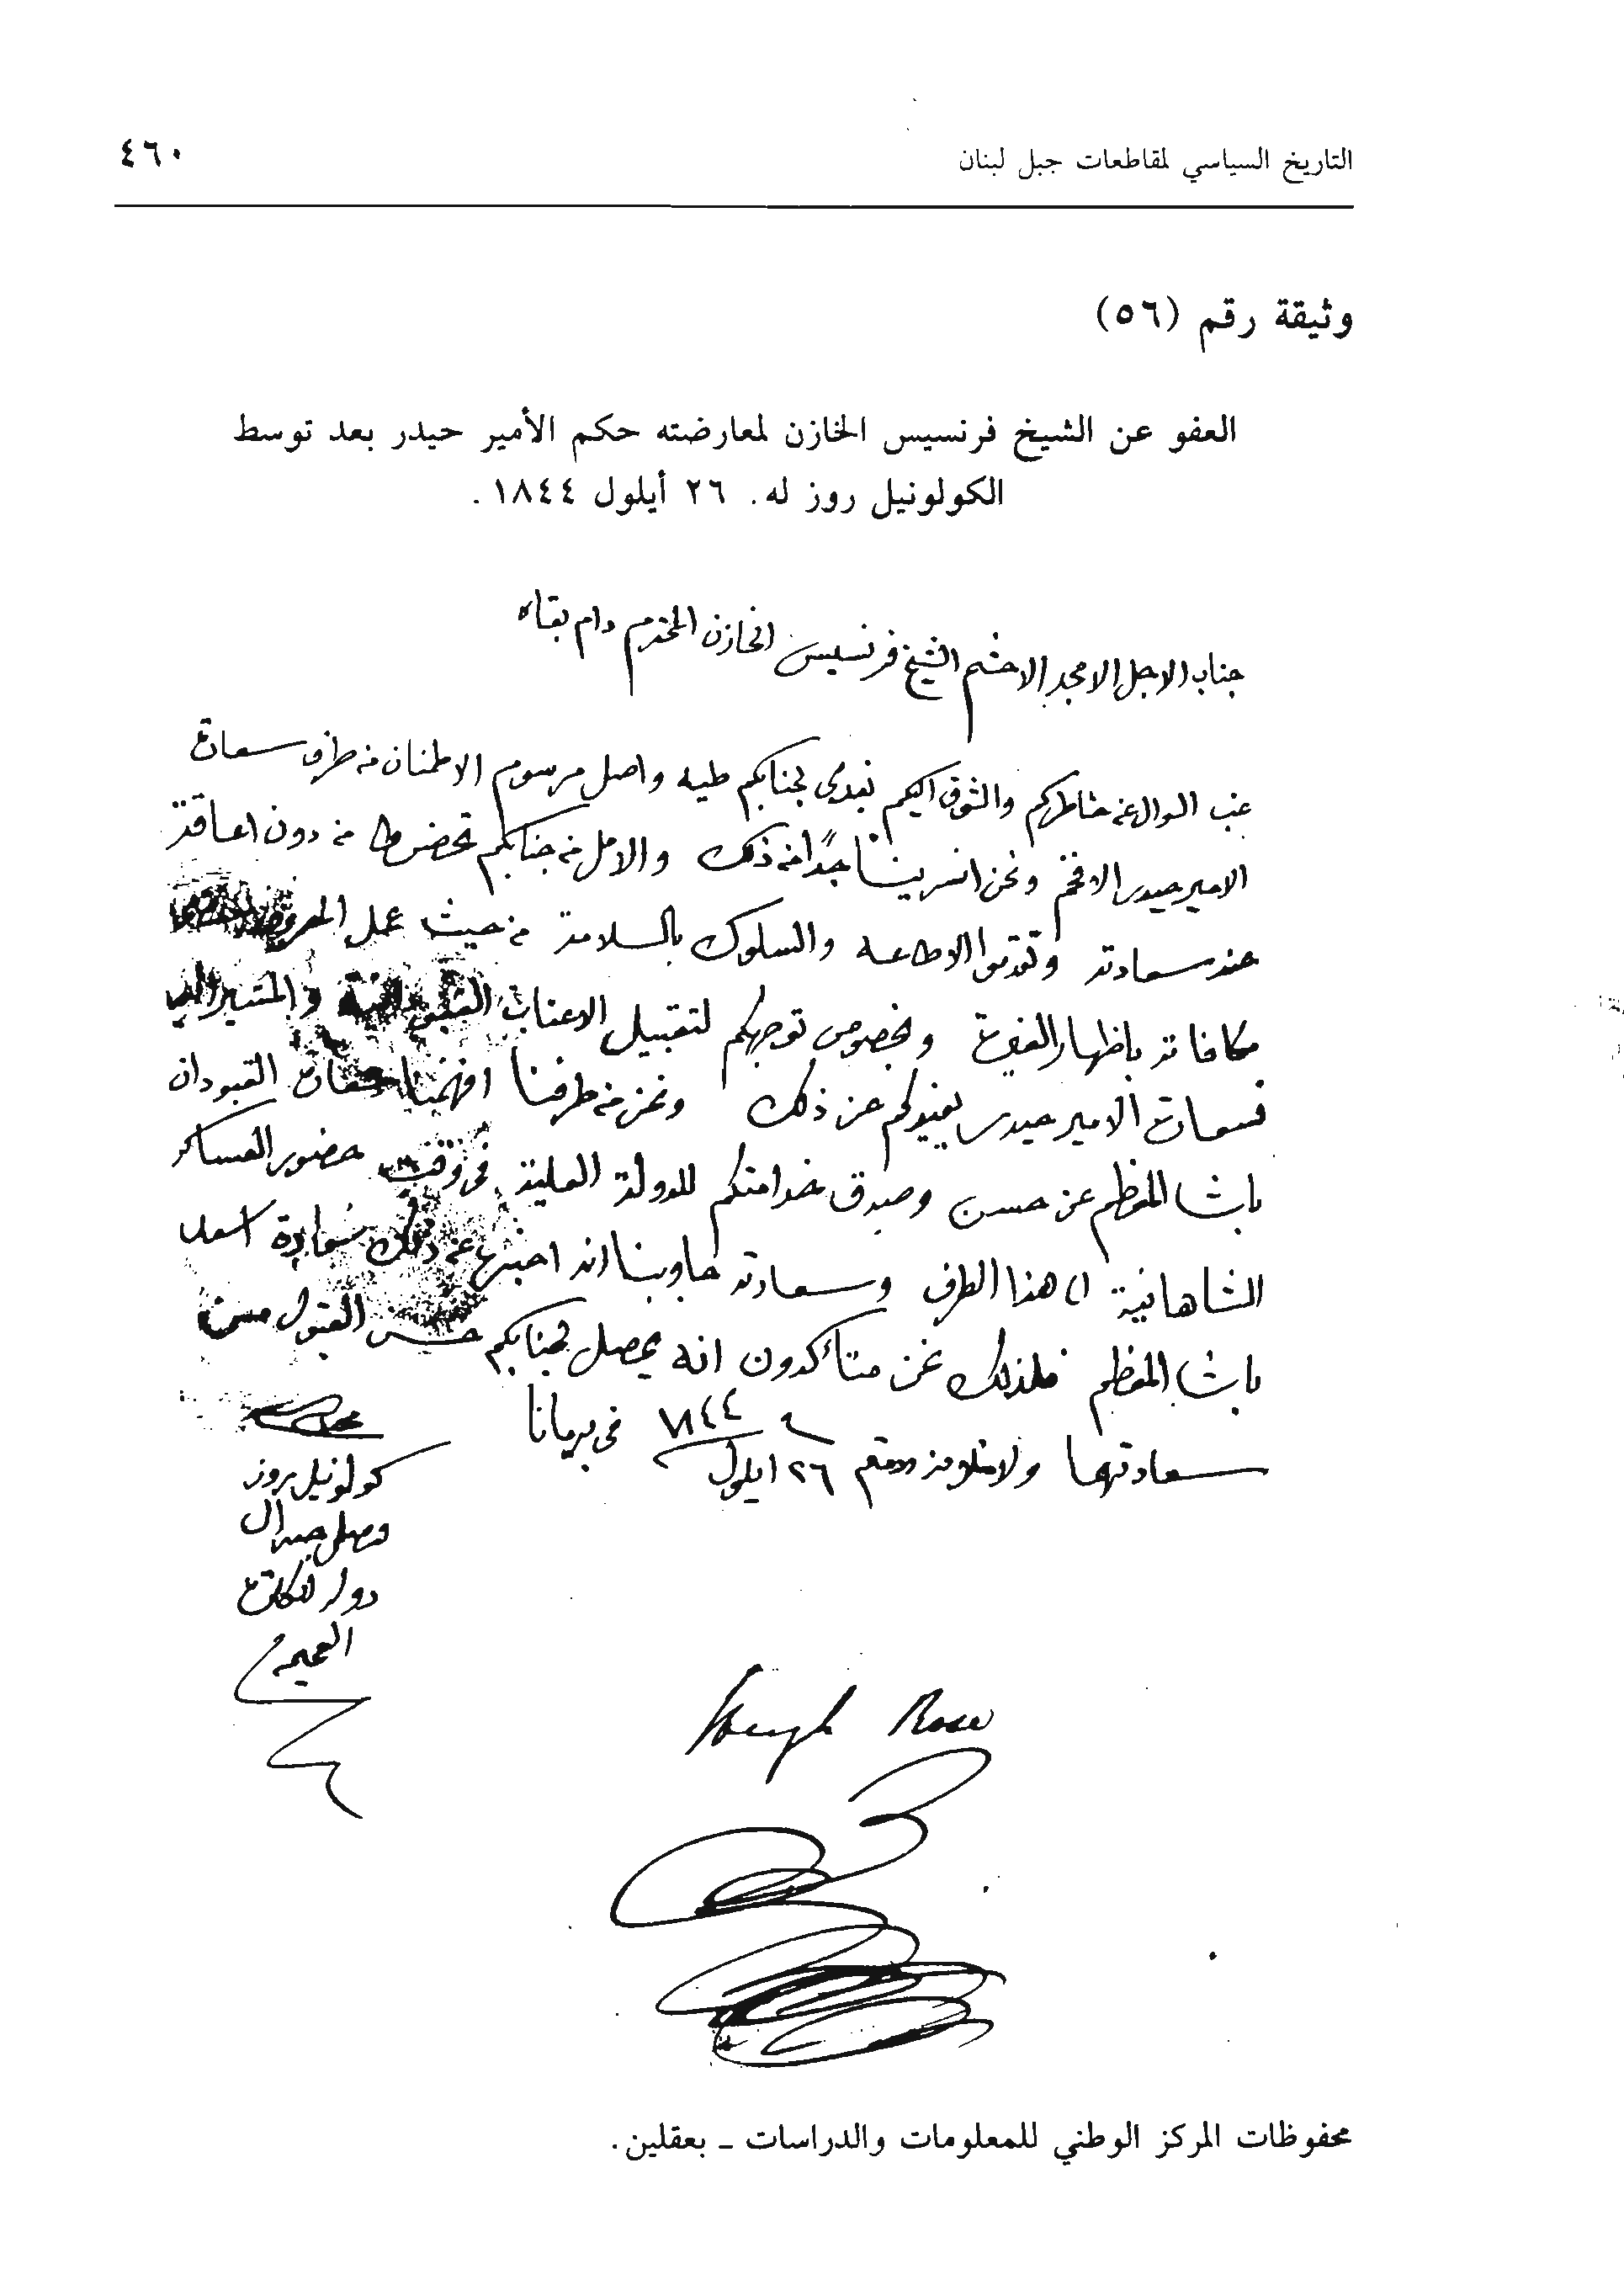 التاريخ السياسي لمقاطعات جبل لبنان ٤٦٠
وثيقة رقم (٥٦)
العفو عن الشيخ فرنسيس الخازن لمعارضته حكم الأمير حيدر بعد توسط
الكولونيل روز له. ٢٦ أيلول ١٨٤٤.
جناب الاجل الامجد الاحشم الشيخ فرنسيس الخازن المحترم دام بقاه
غب السوال عن خاطركم والشوق اليكم نبدي لجنابكم طيه واصل مرسوم الاطمنان من طرف سعادة
الامير حيدر الافخم ونحن انسرينا جدًا من ذلك والامل من جنابكم تحضروا من دون اعاقة
عند سعادته وتقدموا الاطاعه والسلوك بالسلامة من حيث عمل المعروف
مكافاته باظهار الغيرة وبخصوص توجهكم لتقبيل الاعتاب والمشير
فسعادة الامير حيدر يفيدكم عن ذلك ونحن من طرفنا افهمنا سعادة القبودان
باشا المعظم عن حسن وصدق خدامتكم للدولة العلية في وقت حضور العساكر
الشاهانية الى هذا الطرف وسعادته جاوبنا انه اخبر عن ذلك سعادة اسعد
باشا المعظم فلذلك نحن متأكدون انه يحصل لجنابكم حسن القبول من
سعادتهما ٢٦ ايلول ١٨٤٤ في برمانا
كولونيل روز
قنصل جنرال
دولة انكلترة
الفخيمه
Hugh Rose
محفوظات المركز الوطني للمعلومات والدراسات ـ بعقلين.